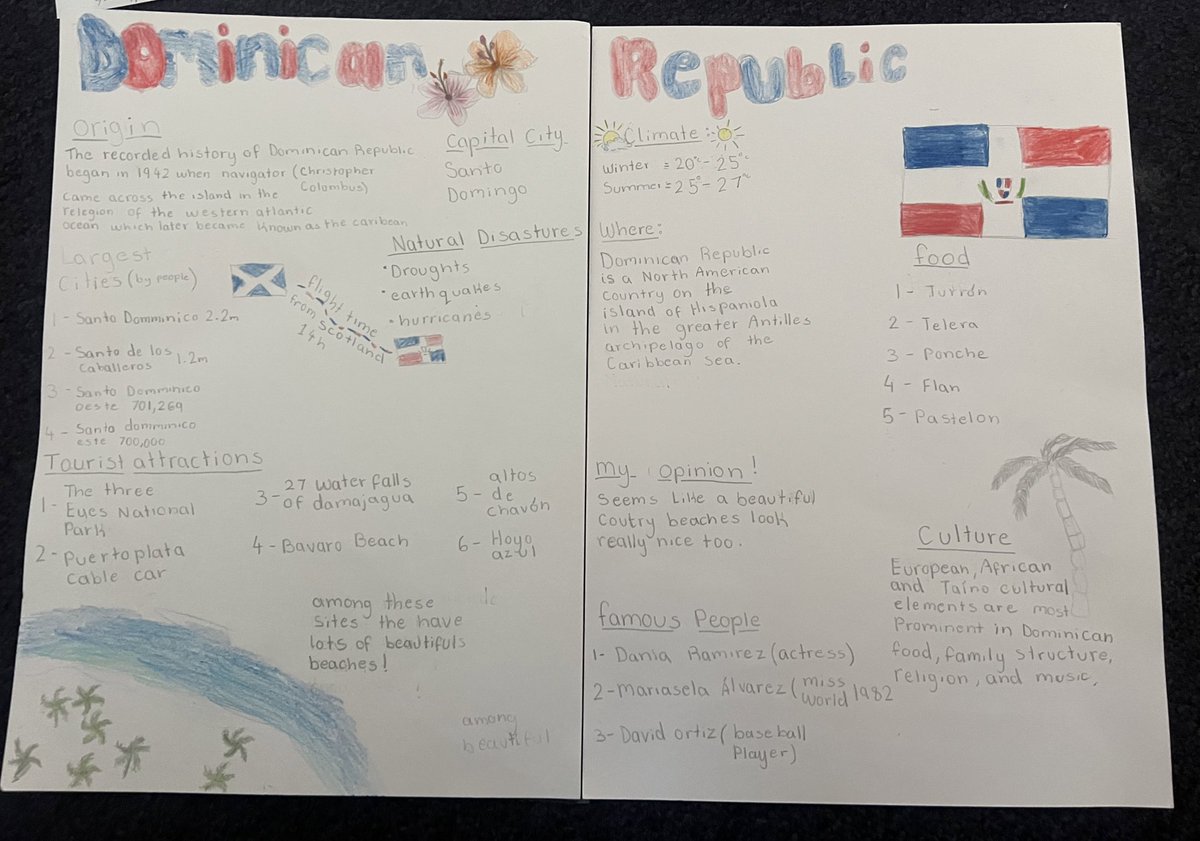 Dominican
Origin
The recorded history of Dominican Republic
began in 1942 when navigator (Christopher
Colombus)
came across the island in the
relegion of the western atlantic
ocean which later became known as the caribean
Capital City
Santo
Domingo
Largest
Cities (by people)
1 - Santo Domminico 2.2m
2 - Santo de los
Caballeros 1.2m
3 - Santo Domminico
oeste 701,269
4 - Santo domminico
este 700,000
flight time
from Scotland
14h
Natural Disastures
• Droughts
• earthquakes
• hurricanes
Tourist attractions
1 - The three
Eyes National
Park
2 - Puertoplata
cable car
3 - 27 water falls
of damajagua
4 - Bavaro Beach
5 - altos
de
chavón
6 - Hoyo
azul
among these
sites the have
lots of beautifuls
beaches!
among
beautiful
Republic
Climate:
Winter = 20°c - 25°c
Summer = 25° - 27°c
Where:
Dominican Republic
is a North American
country on the
island of Hispaniola
in the greater Antilles
archipelago of the
Caribbean sea.
food
1 - Turrón
2 - Telera
3 - Ponche
4 - Flan
5 - Pastelon
my opinion!
Seems like a beautiful
coutry beaches look
really nice too.
Culture
European, African
and Taíno cultural
elements are most
Prominent in Dominican
food, family structure,
religion, and music,
famous People
1 - Dania Ramirez (actress)
2 - mariasela Álvarez (miss
world 1982
3 - David ortiz (baseball
Player)